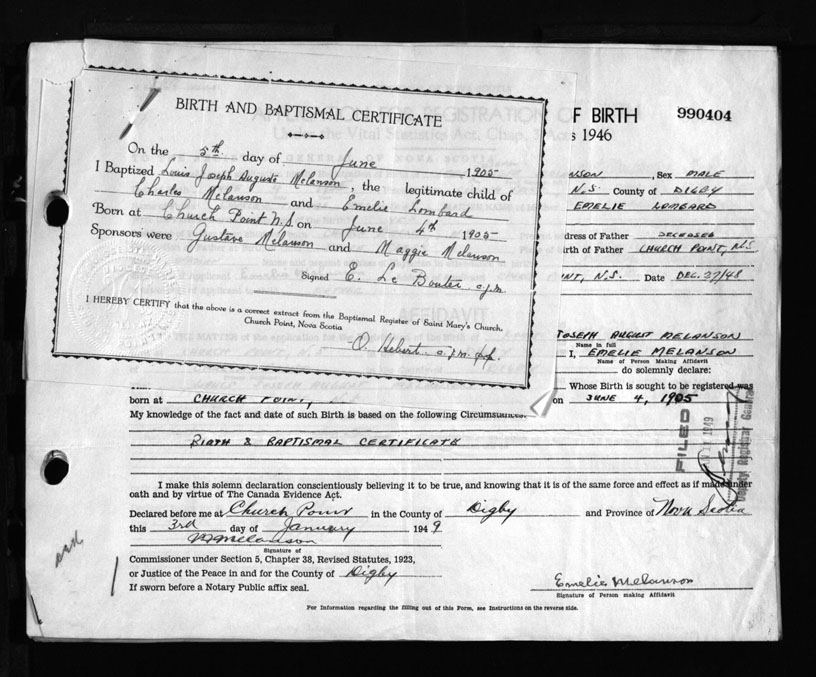 BIRTH AND BAPTISMAL CERTIFICATE
On the 5th day of June 1905
I Baptized Louis Joseph Auguste Melanson, the legitimate child of
Charles Melanson and Emelie Lombard
Born at Church Point N.S. on June 4th 1905
Sponsors were Gustave Melanson and Maggie Melanson
Signed E. Le c.j.m.
I HEREBY CERTIFY that the above is a correct extract from the Baptismal Register of Saint Mary's Church,
Church Point, Nova Scotia
O. Hebert c.j.m. p.p.
OF BIRTH 990404
s 1946
NSON, Sex MALE
N.S. County of DIGBY
EMELIE LOMBARD
dress of Father DECEASED
irth of Father CHURCH POINT, N.S.
NT, N.S. Date DEC. 27/48
JOSEPH AUGUST MELANSON
Name in full
I, EMELIE MELANSON
Name of Person Making Affidavit
do solemnly declare:
Whose Birth is sought to be registered was
born at CHURCH POINT, on JUNE 4, 1905
My knowledge of the fact and date of such Birth is based on the following Circumstances:
BIRTH & BAPTISMAL CERTIFICATE
FILED
1949
Deputy Registrar General
I make this solemn declaration conscientiously believing it to be true, and knowing that it is of the same force and effect as if made under
oath and by virtue of The Canada Evidence Act.
Declared before me at Church Point in the County of Digby and Province of Nova Scotia
this 3rd day of January 1949
Melanson
Signature of
Commissioner under Section 5, Chapter 38, Revised Statutes, 1923,
or Justice of the Peace in and for the County of Digby
If sworn before a Notary Public affix seal.
Emelie Melanson
Signature of Person making Affidavit
For Information regarding the filling out of this Form, see Instructions on the reverse side.